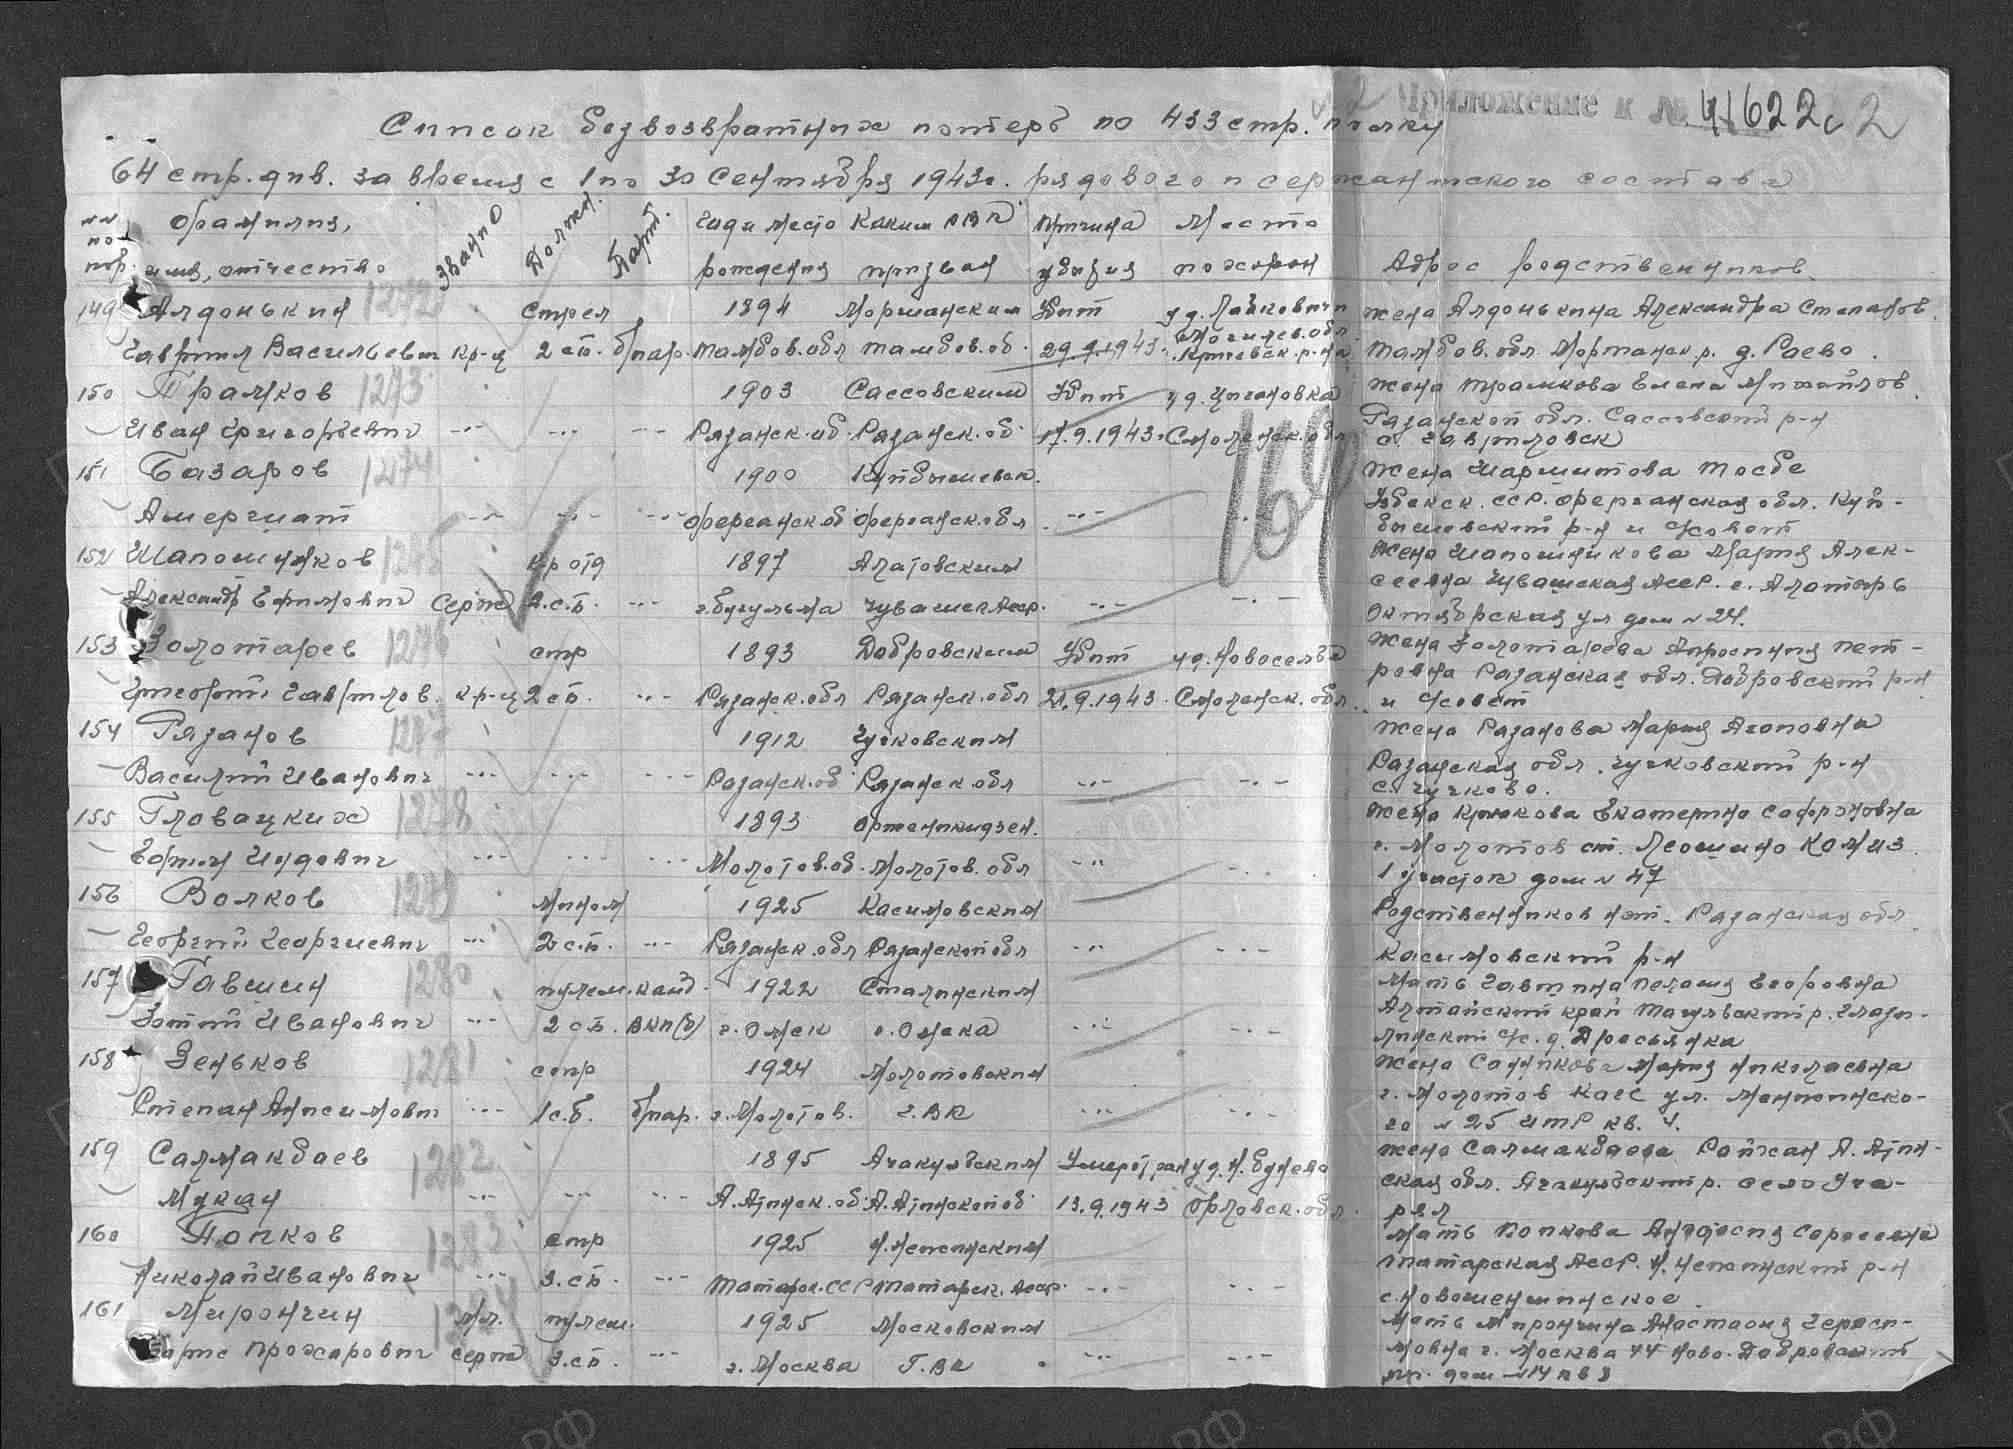 Приложение к № 41622с 2
Список безвозвратных потерь по 433 стр. полку
64 стр. див. за время с 1 по 30 Сентября 1943г. рядового и сержантского состава
№№ по пор. Фамилия, имя, отчество Звание Должн. Парт. Год и место рождения Каким РВК призван Причина убытия Место похорон Адрес родственников
149 Алдонькин 1272 Стрел 1894 Моршанским Убит у д. Пажковичи жена Алдонькина Александра Степанов.
Гаврил Васильевич кр-ц 2 сб. б/пар. Тамбов. обл Тамбов. об. 29.9.1943. Могилев. обл Кричевск. р-на Тамбов. обл. Моршанск. р. д. Раево.
150 Трамков 1273 1903 Сассовским Убит у д. Цыгановка жена Трамкова Елена Михайлов.
Иван Григорьевич -"- -"- -"- Рязанск. об. Рязанск. об. 17.9.1943. Смоленск. обл Рязанской обл. Сассовский р-н
с Гавриловск
151 Базаров 1274 1900 Куйбышевск. жена Шармитова Тосбе
Амергиат -"- -"- -"- Ферганск. об Ферганск. обл -"- -"- Узбекск. ССР. Ферганская обл. Куй-
бышевский р-н и с/совет
152 Шапошников 1275 к-р отд 1897 Алатовским жена Шапошникова Мария Алек-
Александр Ефимович Серж 2.с.б. -"- г. Бугульма Чувашск Асср. -"- -"- сеевна Чувашская АССР. г. Алатырь
Октябрьская ул дом № 24.
169
153 Золотарев 1276 стр 1893 Добровским Убит у д. Новоселье жена Золотарева Апросиния Пет-
Григорий Гаврилов. кр-ц 2 сб. -"- Рязанск. обл Рязанск. обл 21.9.1943. Смоленск. обл. ровна Рязанская обл. Добровский р-н
и с/совет
154 Рязанов 1277 1912 Чучковским жена Рязанова Мария Агаповна
Василий Иванович -"- -"- -"- Рязанск. об Рязанск обл -"- -"- Рязанская обл. Чучковский р-н
с. Чучково.
155 Гловацких 1278 1893 Орженикидзен. жена Крюкова Екатерина Сафроновна
Ефим Иудович -"- -"- -"- Молотов. об. Молотов. обл -"- -"- г. Молотов ст. Левшино
1 участок дом № 47
156 Волков 1279 мином 1925 Касимовским Родственников нет. Рязанская обл
Георгий Георгиевич -"- 2 с.б. -"- Рязанск. обл Рязанской обл -"- -"- Касимовский р-н
157 Гавшин 1280 пулем. канд. 1922 Сталинским мать Гавшина Пелагия Егоровна
Зотий Иванович -"- 2 сб. ВКП(б) г. Омск г. Омска -"- -"- Алтайский край
с/с. д. Дресвянка
158 Зеньков 1281 стр 1924 Молотовским жена Санникова Мария Николаевна
Степан Анисимович -"- 1 с.б. б/пар. г. Молотов. Г.ВК -"- -"- г. Молотов ул.
го № 25 кв. 4.
159 Салмакбаев 1282 1895 Ачакульским Умер от ран у д. Н. Бунево жена Салмакбаева Райхан А. Атин-
Мукан -"- -"- -"- А. Атинск. об. А. Атинской об. 13.9.1943 Орловск. обл. ская обл. Ачакульский р. село Уча-
рал
160 Попков 1283 стр 1925 мать Попкова Сергеевна
Николай Иванович -"- 3. сб. -"- Татарс. ССР Татарск. Асср. -"- -"- Татарская АССР. р-н
с. Новошешминское.
161 Мирончин 1284 мл. пулем. 1925 Московским мать Мирончина Анастасия Гераси-
Прохорович серж 3. сб. -"- г. Москва Г.ВК -"- -"- мовна г. Москва 44 Ново-
пр. дом № 14 кв 8